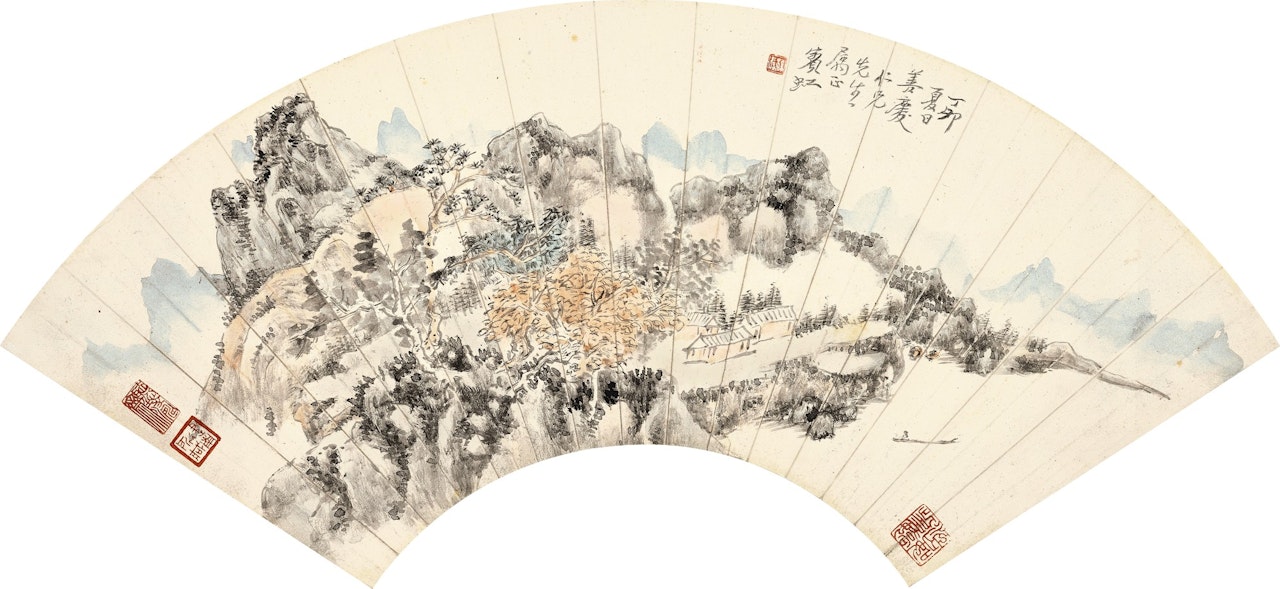 丁卯
夏日
善慶
仁兄
先生
屬正
賓虹